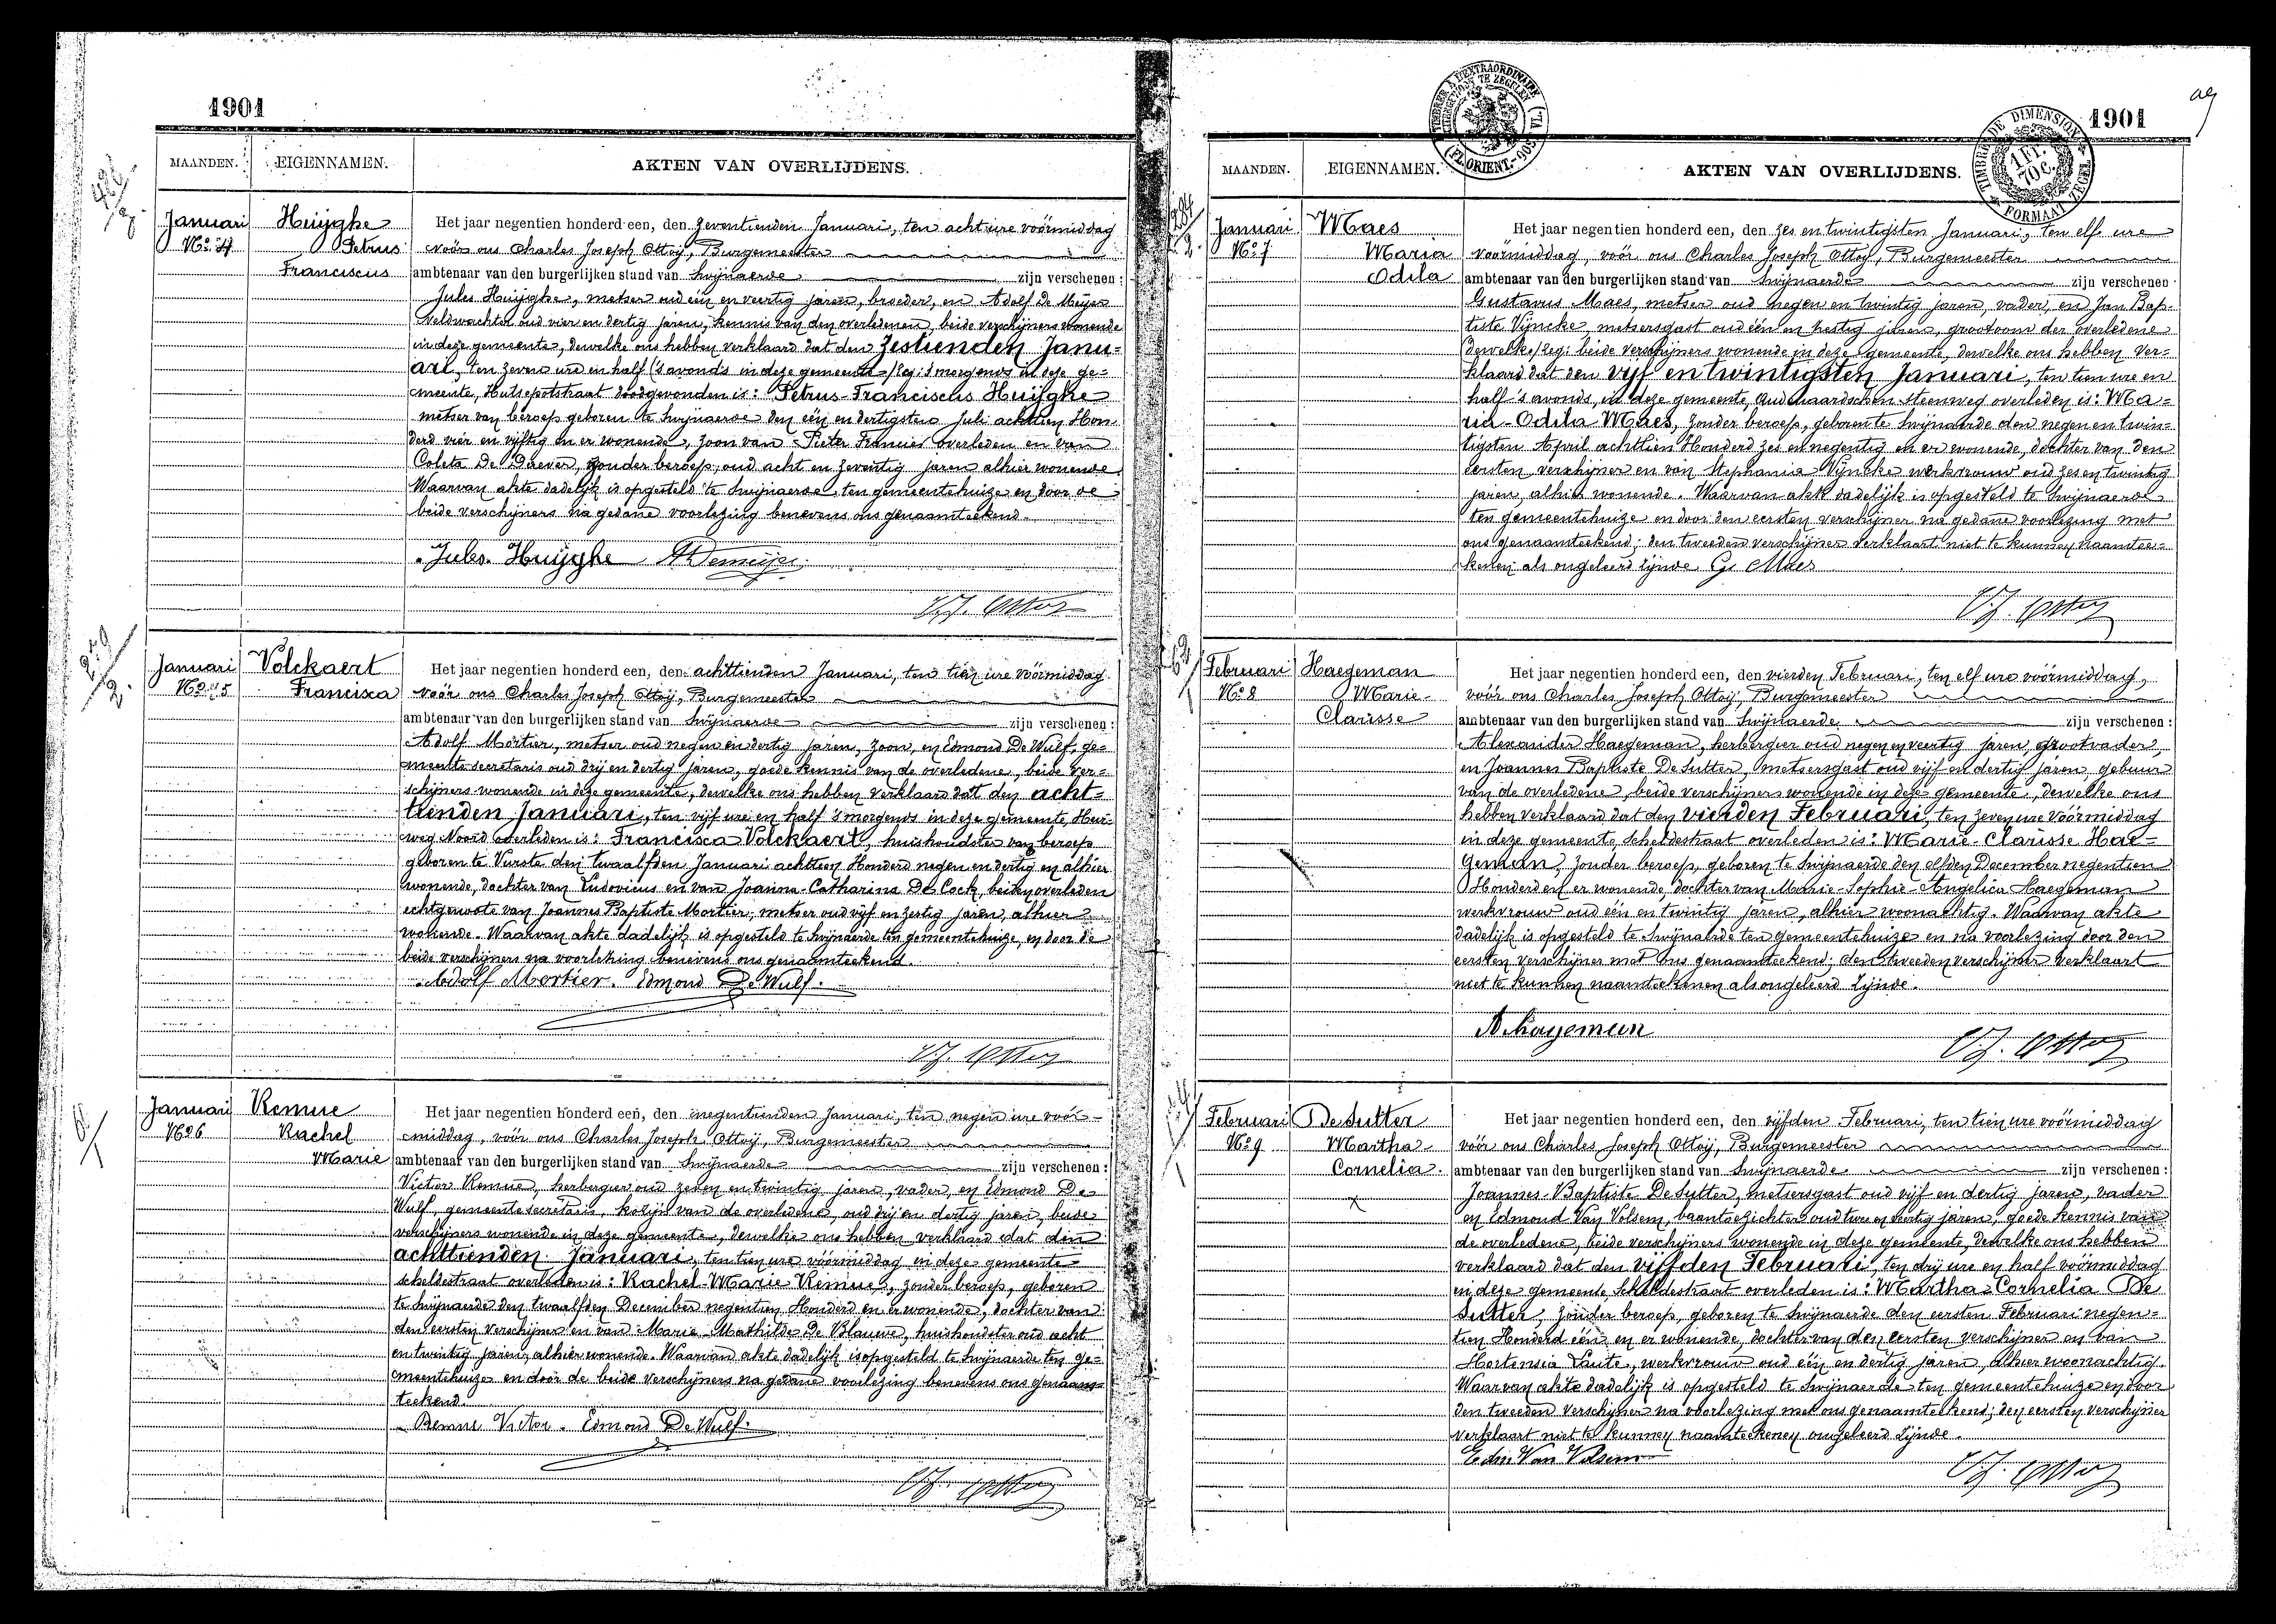 1901
MAANDEN. EIGENNAMEN. AKTEN VAN OVERLIJDENS.
Januari
No 4
Huijghe
Petrus
Franciscus
Het jaar negentien honderd een, den zeventienden Januari, ten acht ure vóórmiddag
voór ons Charles Joseph Ottoij, Burgemeester
ambtenaar van den burgerlijken stand van Swijnaerde zijn verschenen:
Jules Huijghe, metser oud één en veertig jaren, broeder, en Adolf De Meijer
Veldwachter oud vier en dertig jaren, kennis van den overledenen, beide verschijners wonende
in deze gemeente, dewelke ons hebben verklaard dat den zestienden Janu-
ari, ten zeven ure en half ('s avonds in deze gemeente /leg: 's morgends in deze ge-
meente, Hutsepotstraat doodgevonden is: Petrus-Franciscus Huijghe
metser van beroep geboren te Swijnaerde den één en dertigsten Juli achttien Hon
derd vier en vijftig en er wonende, zoon van Pieter Francies overleden en van
Coleta De Drever, zonder beroep, oud acht en zeventig jaren alhier wonende.
Waarvan akte dadelijk is opgesteld te Swijnaerde, ten gemeentehuize en door de
beide verschijners na gedane voorlezing benevens ons genaamteekend.
Jules Huijghe ADemeijer
C.J. Ottoy
Januari
No 5
Volckaert
Francisca
Het jaar negentien honderd een, den achttienden Januari, ten tien ure vóórmiddag
voór ons Charles Joseph Ottoij, Burgemeester
ambtenaar van den burgerlijken stand van Swijnaerde zijn verschenen:
Adolf Mortier, metser oud negen en dertig jaren, zoon, en Edmond De Wulf, ge-
meente secretaris oud drij en dertig jaren, goede kennis van de overledene, beide ver-
schijners wonende in deze gemeente, dewelke ons hebben verklaard dat den acht-
tienden Januari, ten vijf ure en half 's morgends in deze gemeente, Heir-
weg Noord overleden is: Francisca Volckaert, huishoudster van beroep
geboren te Vurste den twaalfden Januari achttien Honderd negen en dertig en alhier
wonende, dochter van Ludovicus en van Joanna-Catharina De Cock, beiden overleden
echtgenoote van Joannes Baptiste Mortier, metser oud vijf en zestig jaren, alhier
wonende. Waarvan akte dadelijk is opgesteld te Swijnaerde ten gemeentehuize, en door de
beide verschijners na voorlezing benevens ons genaamteekend.
Adolf Mortier. Edmond De Wulf.
C.J. Ottoy
Januari
No 6
Remue
Rachel
Marie
Het jaar negentien honderd een, den negentienden Januari, ten negen ure voór-
middag, vóór ons Charles Joseph Ottoij, Burgemeester
ambtenaar van den burgerlijken stand van Swijnaerde zijn verschenen:
Victor Remue, herbergier oud zeven en twintig jaren, vader, en Edmond De
Wulf, gemeente secretaris, kozijn van de overledene, oud drij en dertig jaren, beide
verschijners wonende in deze gemeente, dewelke ons hebben verklaard dat den
achttienden Januari, ten tien ure vóórmiddag in deze gemeente
scheldestraat overleden is: Rachel-Marie Remue, zonder beroep, geboren
te Swijnaerde den twaalfden December negentien Honderd en er wonende, dochter van
den eersten verschijner en van Marie Mathilde De Blauwe, huishoudster oud acht
en twintig jaren, alhier wonende. Waarvan akte dadelijk is opgesteld te Swijnaerde ten ge-
meentehuize en door de beide verschijners na gedane voorlezing benevens ons genaam-
teekend.
Remue Victor. Edmond De Wulf.
C.J. Ottoy
1901
TIMBRE A L'EXTRAORDINAIRE
(FL. ORIENT.-905)
TIMBRE DE DIMENSION
1 FR. 70 C.
FORMAAT ZEGEL
MAANDEN. EIGENNAMEN. AKTEN VAN OVERLIJDENS.
Januari
No 7
Maes
Maria
Odila
Het jaar negentien honderd een, den zes en twintigsten Januari, ten elf ure
voórmiddag, voór ons Charles Joseph Ottoy, Burgemeester
ambtenaar van den burgerlijken stand van Swijnaerde zijn verschenen
Gustavus Maes, metser oud negen en twintig jaren, vader, en Jan Bap-
tiste Vijncke, metsersgast oud één en zestig jaren, grootoom der overledene
(dewelke/leg: beide verschijners wonende in deze gemeente, dewelke ons hebben ver-
klaard dat den vijf en twintigsten Januari, ten tien ure en
half 's avonds, in deze gemeente, Oudenaardschen steenweg overleden is: Ma-
ria-Odila Maes, zonder beroep, geboren te Swijnaerde den negen en twin-
tigsten April achttien Honderd zes en negentig en er wonende, dochter van den
eersten verschijner en van Stephania Vijncke werkvrouw oud zes en twintig
jaren, alhier wonende. Waarvan akte dadelijk is opgesteld te Swijnaerde
ten gemeentehuize en door den eersten verschijner na gedane voorlezing met
ons genaamteekend; den tweeden verschijner verklaart niet te kunnen naamtee-
kenen als ongeleerd zijnde. G. Maes
C.J. Ottoy
Februari
No 8
Haegeman
Marie-
Clarisse
Het jaar negentien honderd een, den vierden Februari, ten elf ure voórmiddag,
voór ons Charles Joseph Ottoij, Burgemeester
ambtenaar van den burgerlijken stand van Swijnaerde zijn verschenen:
Alexander Haegeman, herbergier oud negen en veertig jaren, grootvader,
en Joannes Baptiste De Sutter, metsersgast oud vijf en dertig jaren, gebuur
van de overledene, beide verschijners wonende in deze gemeente, dewelke ons
hebben verklaard dat den vierden Februari, ten zeven ure vóórmiddag
in deze gemeente, scheldestraat overleden is: Marie-Clarisse Hae-
geman, zonder beroep, geboren te Swijnaerde den elfden December negentien
Honderd en er wonende, dochter van Marie-Sophie-Angelica Haegeman
werkvrouw oud één en twintig jaren, alhier woonachtig. Waarvan akte
dadelijk is opgesteld te Swijnaerde ten gemeentehuize en na voorlezing door den
eersten verschijner met ons genaamteekend; den tweeden verschijner verklaart
niet te kunnen naamteekenen als ongeleerd zijnde.
A. Hagemun
C.J. Ottoy
Februari
No 9
De Sutter
Martha
Cornelia.
Het jaar negentien honderd een, den vijfden Februari, ten tien ure vóórmiddag
vóór ons Charles Joseph Ottoij, Burgemeester
ambtenaar van den burgerlijken stand van Swijnaerde zijn verschenen:
Joannes-Baptiste De Sutter, metsersgast oud vijf en dertig jaren, vader
en Edmond Van Volsem, baantoezichter oud twee en veertig jaren, goede kennis van
de overledene, beide verschijners wonende in deze gemeente, dewelke ons hebben
verklaard dat den vijfden Februari, ten drij ure en half vóórmiddag
in deze gemeente, Scheldestraat overleden is: Martha-Cornelia De
Sutter, zonder beroep, geboren te Swijnaerde den eersten Februari negen-
tien Honderd één en er wonende, dochter van den eersten verschijner en van
Hortensia Laute, werkvrouw oud één en dertig jaren, alhier woonachtig.
Waarvan akte dadelijk is opgesteld te Swijnaerde ten gemeentehuize en door
den tweeden verschijner na voorlezing met ons genaamteekend; den eersten verschijner
verklaart niet te kunnen naamteekenen ongeleerd zijnde.
Edm Van Volsem
C.J. Ottoy